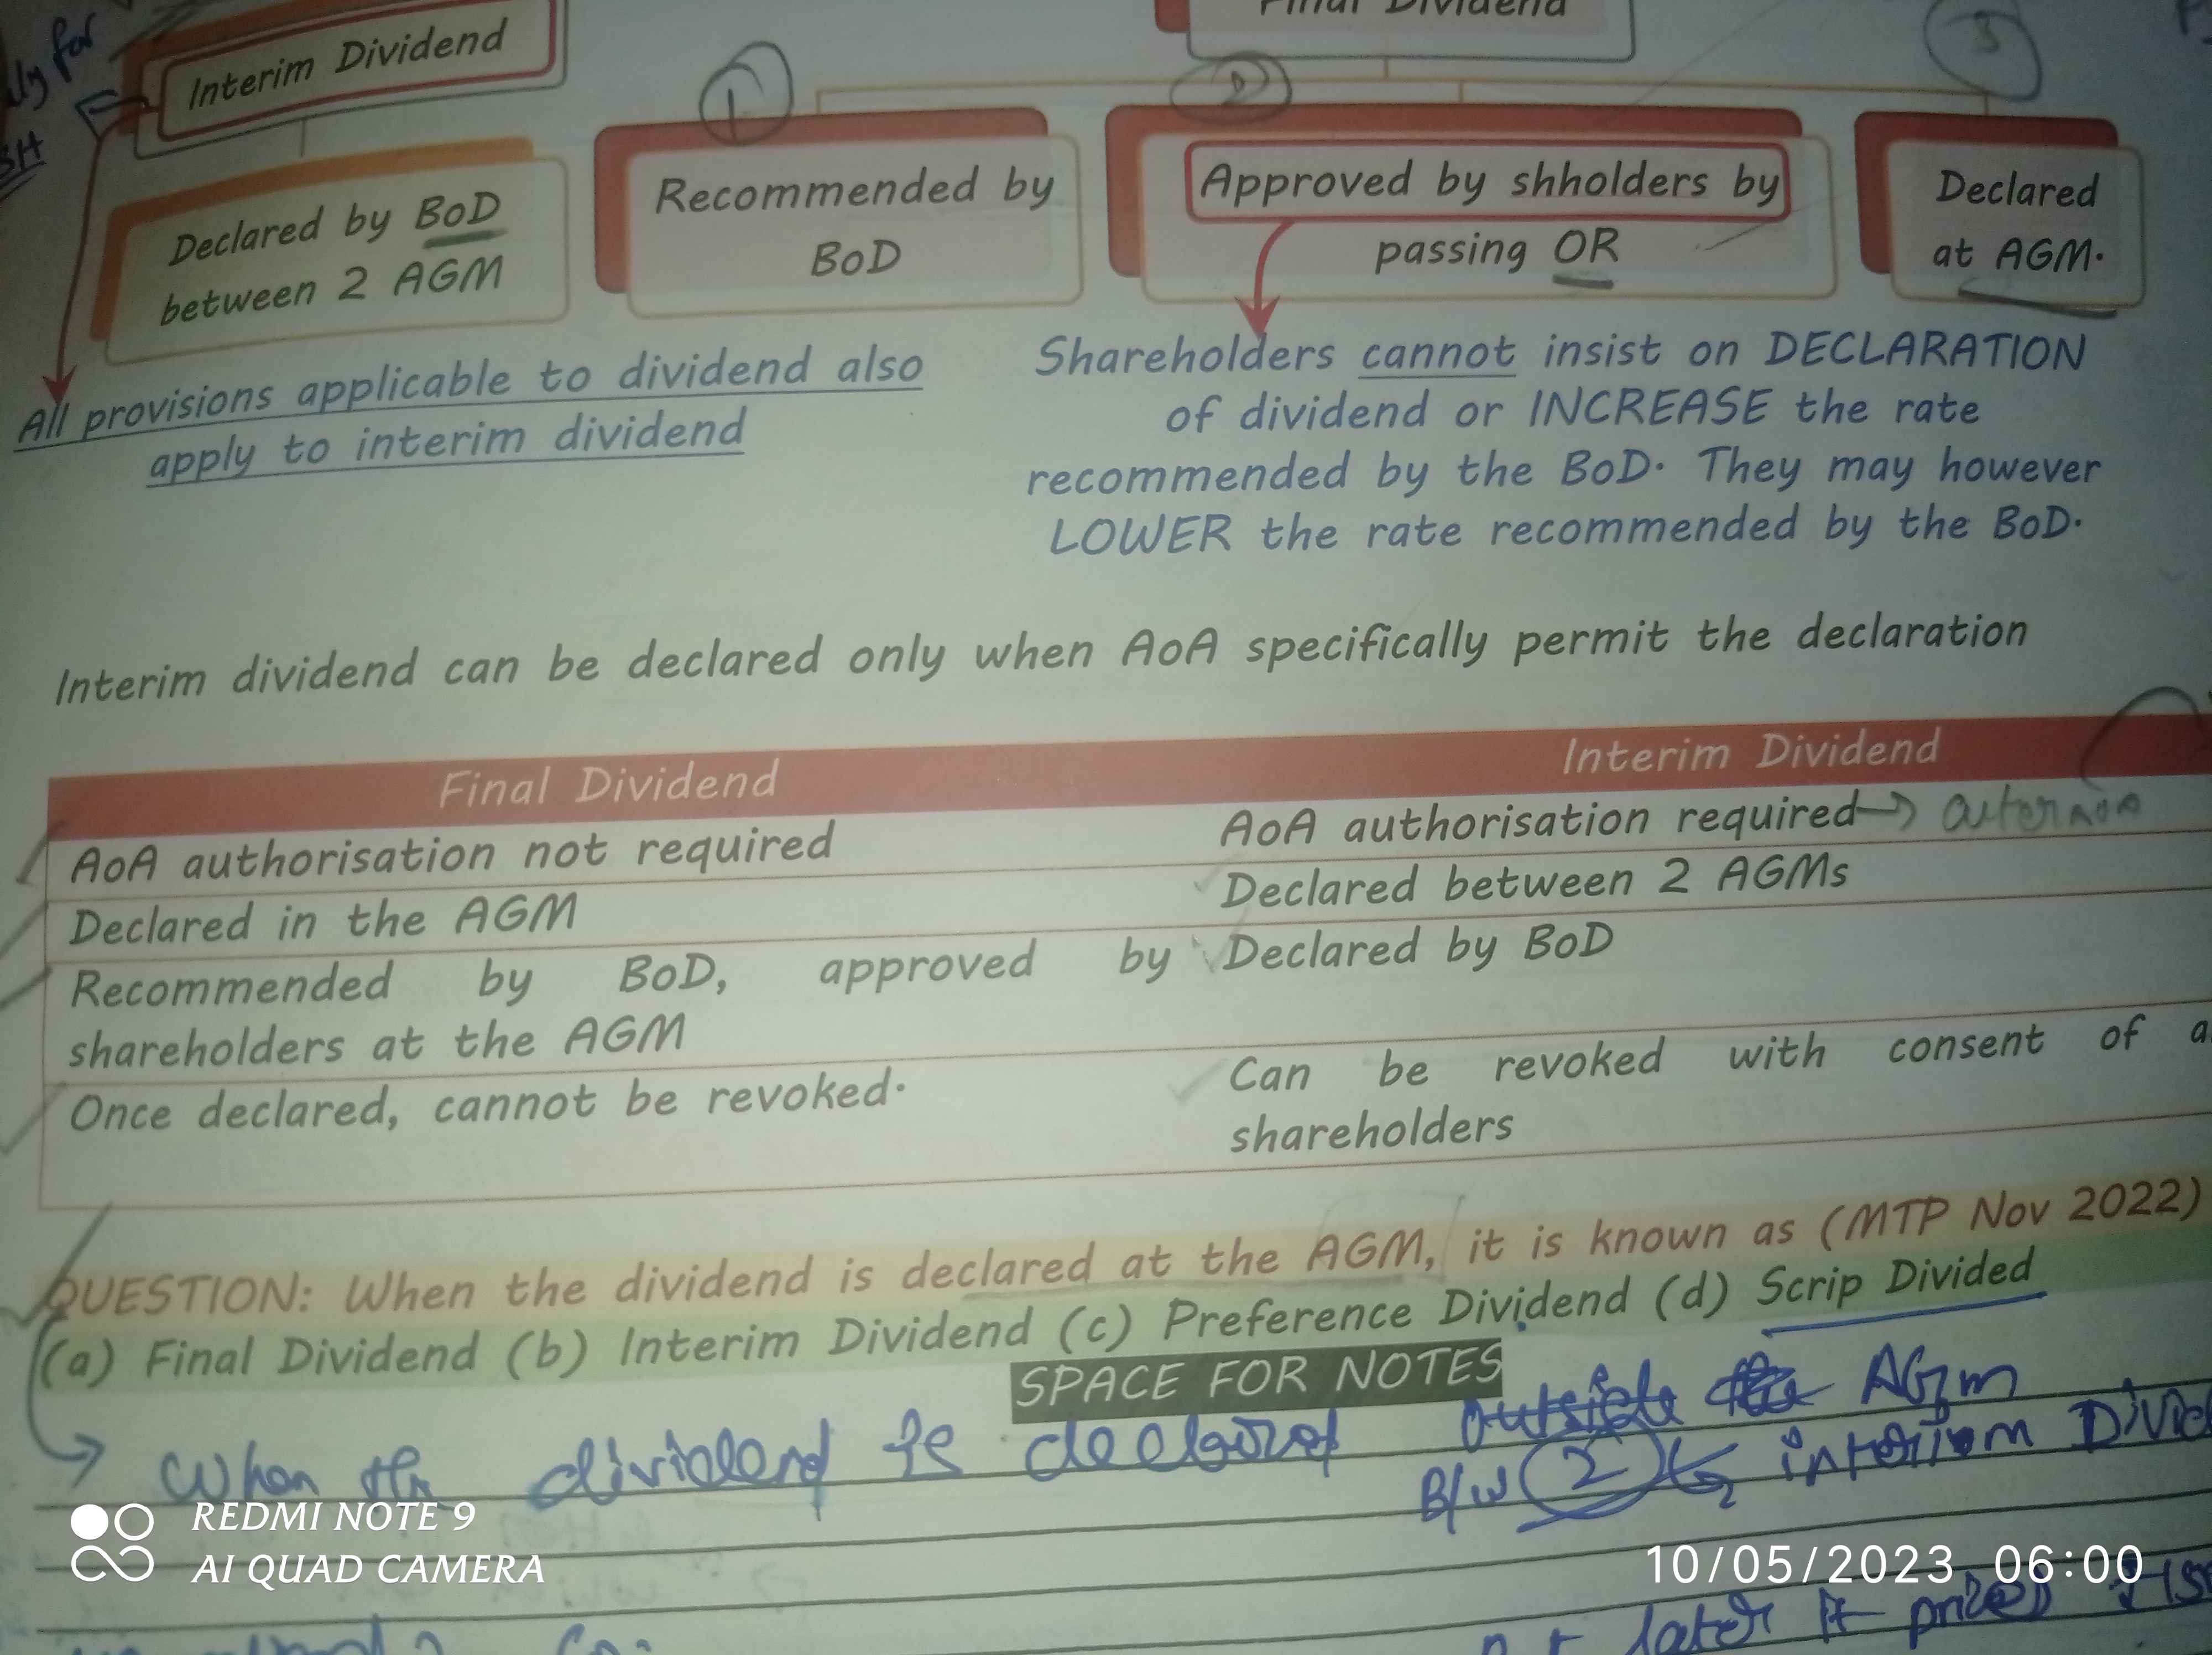 Final Dividend
Interim Dividend
ly for
SH
1
2
3
Declared by BoD
between 2 AGM
Recommended by
BoD
Approved by shholders by
passing OR
Declared
at AGM.
All provisions applicable to dividend also
apply to interim dividend
Shareholders cannot insist on DECLARATION
of dividend or INCREASE the rate
recommended by the BoD. They may however
LOWER the rate recommended by the BoD.
Interim dividend can be declared only when AoA specifically permit the declaration
Final Dividend Interim Dividend
AoA authorisation not required
AoA authorisation required →
Declared in the AGM
Declared between 2 AGMs
Recommended by BoD, approved by
shareholders at the AGM
Declared by BoD
Once declared, cannot be revoked.
Can be revoked with consent of
shareholders
QUESTION: When the dividend is declared at the AGM, it is known as (MTP Nov 2022)
(a) Final Dividend (b) Interim Dividend (c) Preference Dividend (d) Scrip Divided
SPACE FOR NOTES
When the dividend is declared outside the AGM
B/w 2 interim Divid
REDMI NOTE 9
AI QUAD CAMERA
10/05/2023 06:00
later